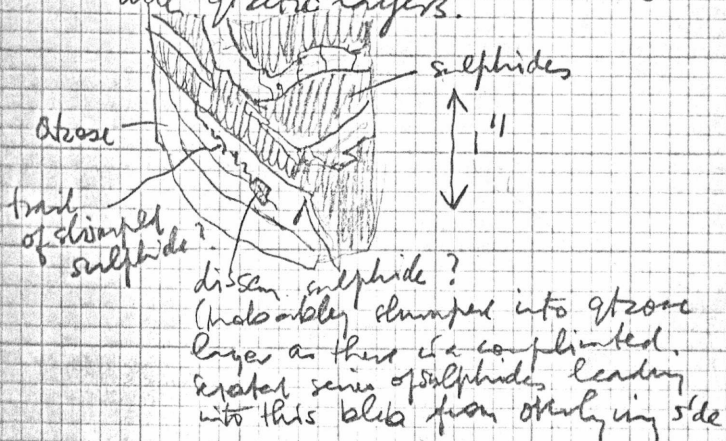 qtzose layers.
sulphides
Qtzose
1"
trail
of slumped
sulphide?
dissem sulphide?
(probably slumped into qtzose
layer as there is a complicated
series of sulphides leading
into this bleb from overlying side